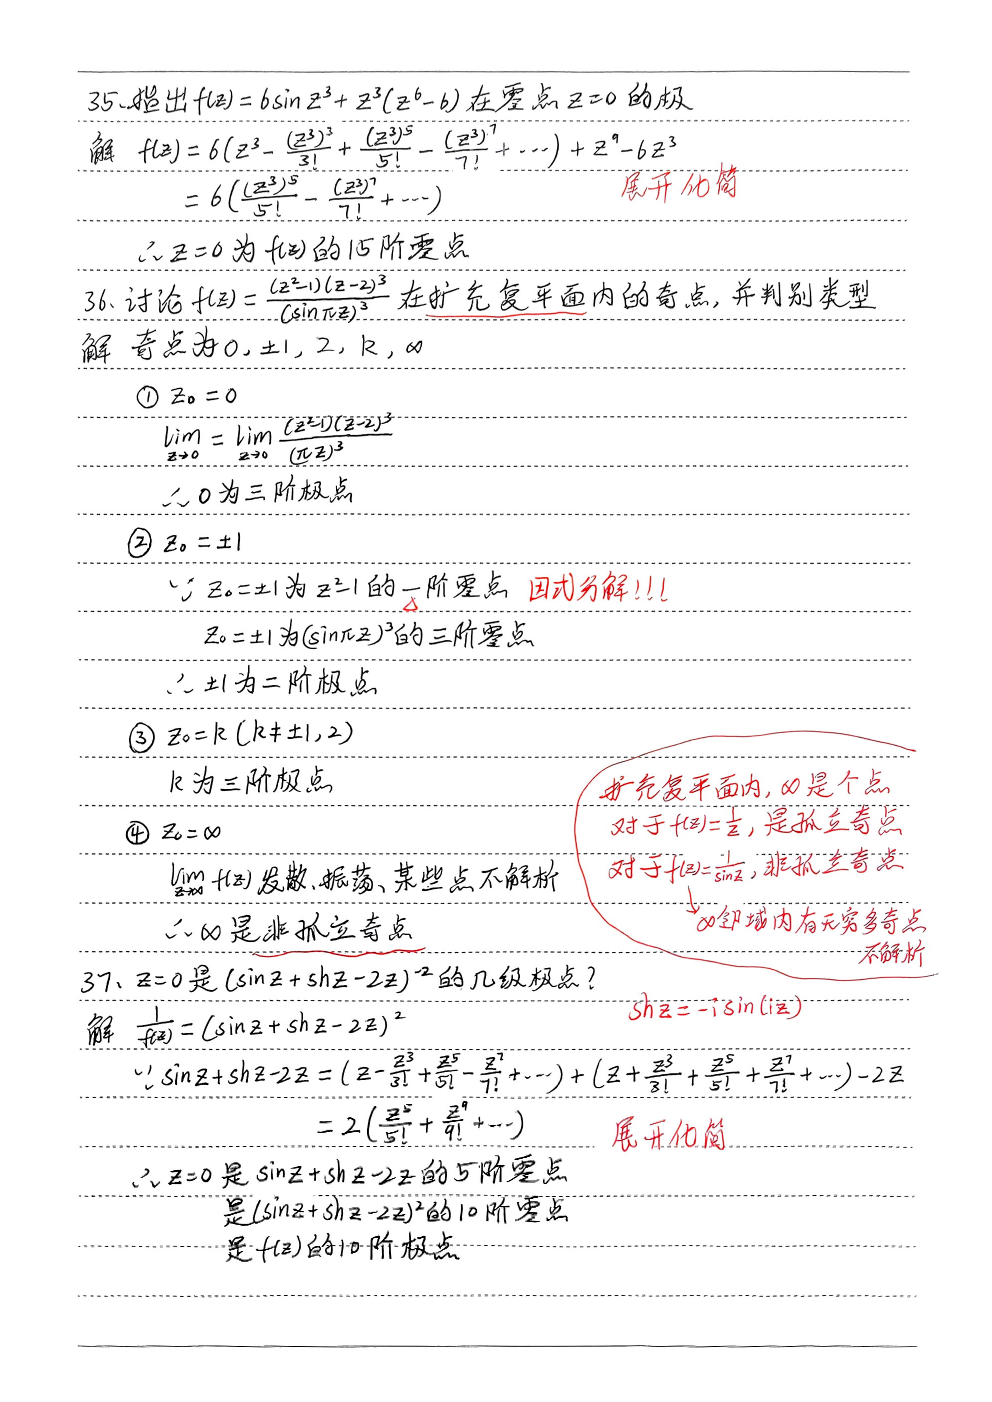 35、指出f(z)=6sin z³+z³(z⁶-6)在零点z=0的极
解 f(z)=6(z³-(z³)³/3!+(z³)⁵/5!-(z³)⁷/7!+…)+z⁹-6z³
=6((z³)⁵/5!-(z³)⁷/7!+…)
展开化简
∴z=0为f(z)的15阶零点
36、讨论f(z)=(z²-1)(z-2)³/(sinπz)³在扩充复平面内的奇点,并判别类型
解 奇点为0,±1,2,k,∞
① z₀=0
lim z→0 = lim z→0 (z²-1)(z-2)³/(πz)³
∴0为三阶极点
② z₀=±1
∵ z₀=±1为z²-1的一阶零点 因式分解!!!
z₀=±1为(sinπz)³的三阶零点
∴±1为二阶极点
③ z₀=k(k≠±1,2)
k为三阶极点
④ z₀=∞
lim z→∞ f(z)发散、振荡、某些点不解析
∴∞是非孤立奇点
扩充复平面内,∞是个点
对于f(z)=1/z,是孤立奇点
对于f(z)=1/sinz,非孤立奇点
→∞邻域内有无穷多奇点
不解析
37、z=0是(sinz+shz-2z)⁻²的几级极点?
shz=-isin(iz)
解 1/f(z)=(sinz+shz-2z)²
∵sinz+shz-2z=(z-z³/3!+z⁵/5!-z⁷/7!+…)+(z+z³/3!+z⁵/5!+z⁷/7!+…)-2z
=2(z⁵/5!+z⁹/9!+…)
展开化简
∴z=0是sinz+shz-2z的5阶零点
是(sinz+shz-2z)²的10阶零点
是f(z)的10阶极点